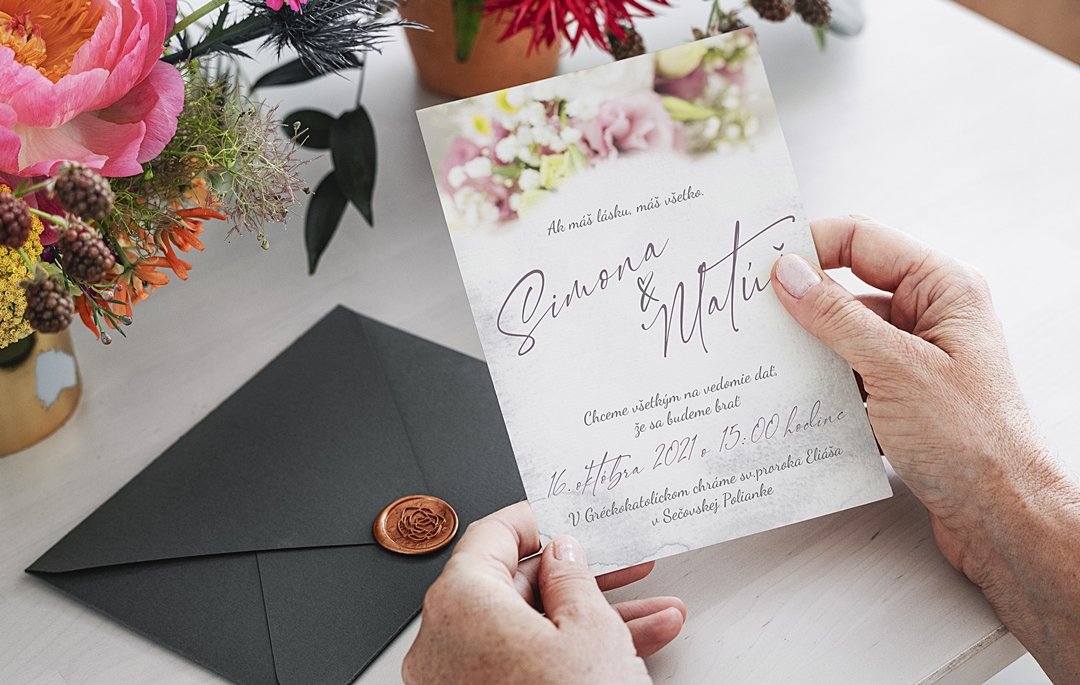 Ak máš lásku, máš všetko.
Simona
&
Matúš
Chceme všetkým na vedomie dať,
že sa budeme brať
16. októbra 2021 o 15:00 hodine
V Gréckokatolickom chráme sv.proroka Eliáša
v Sečovskej Polianke